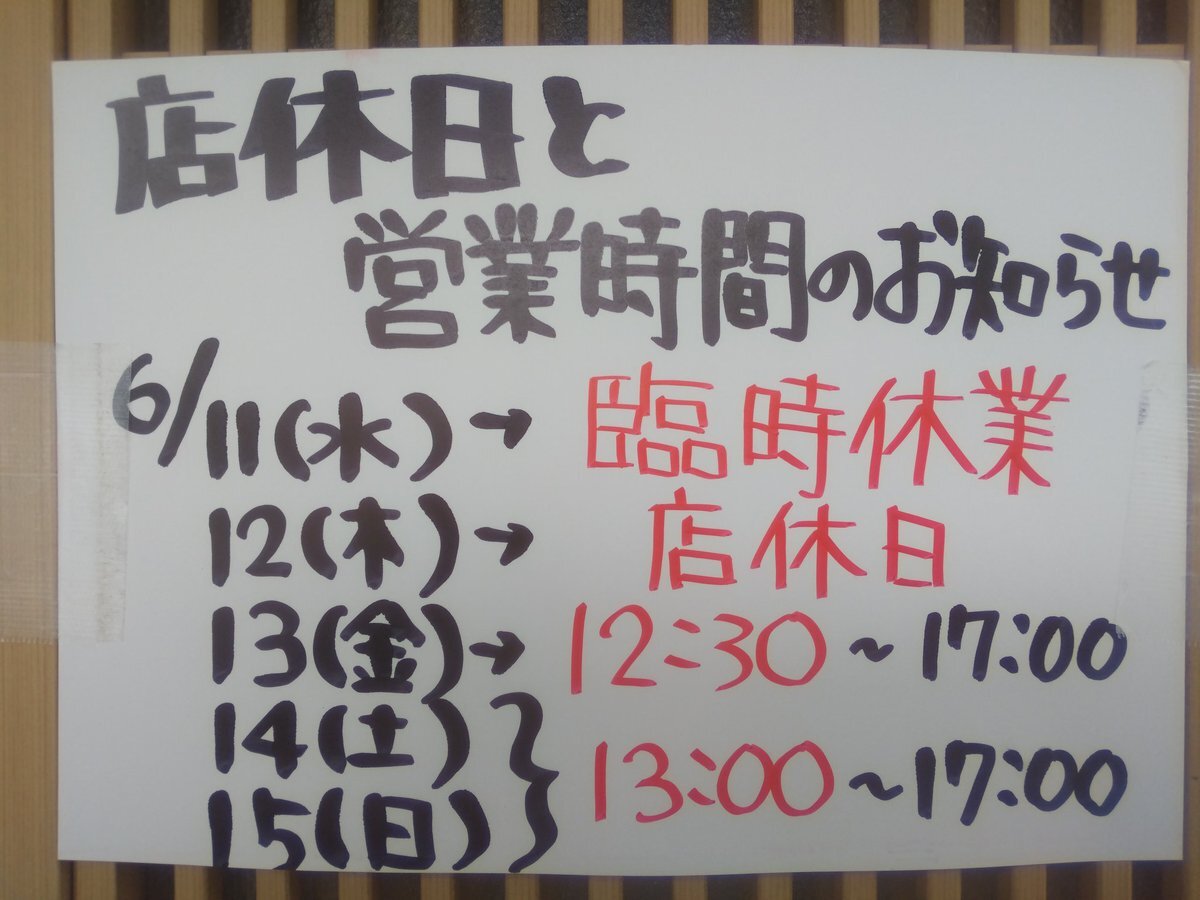 店休日と
営業時間のお知らせ
6/11(水)→ 臨時休業
12(木)→ 店休日
13(金)→ 12:30~17:00
14(土)
15(日)} 13:00~17:00